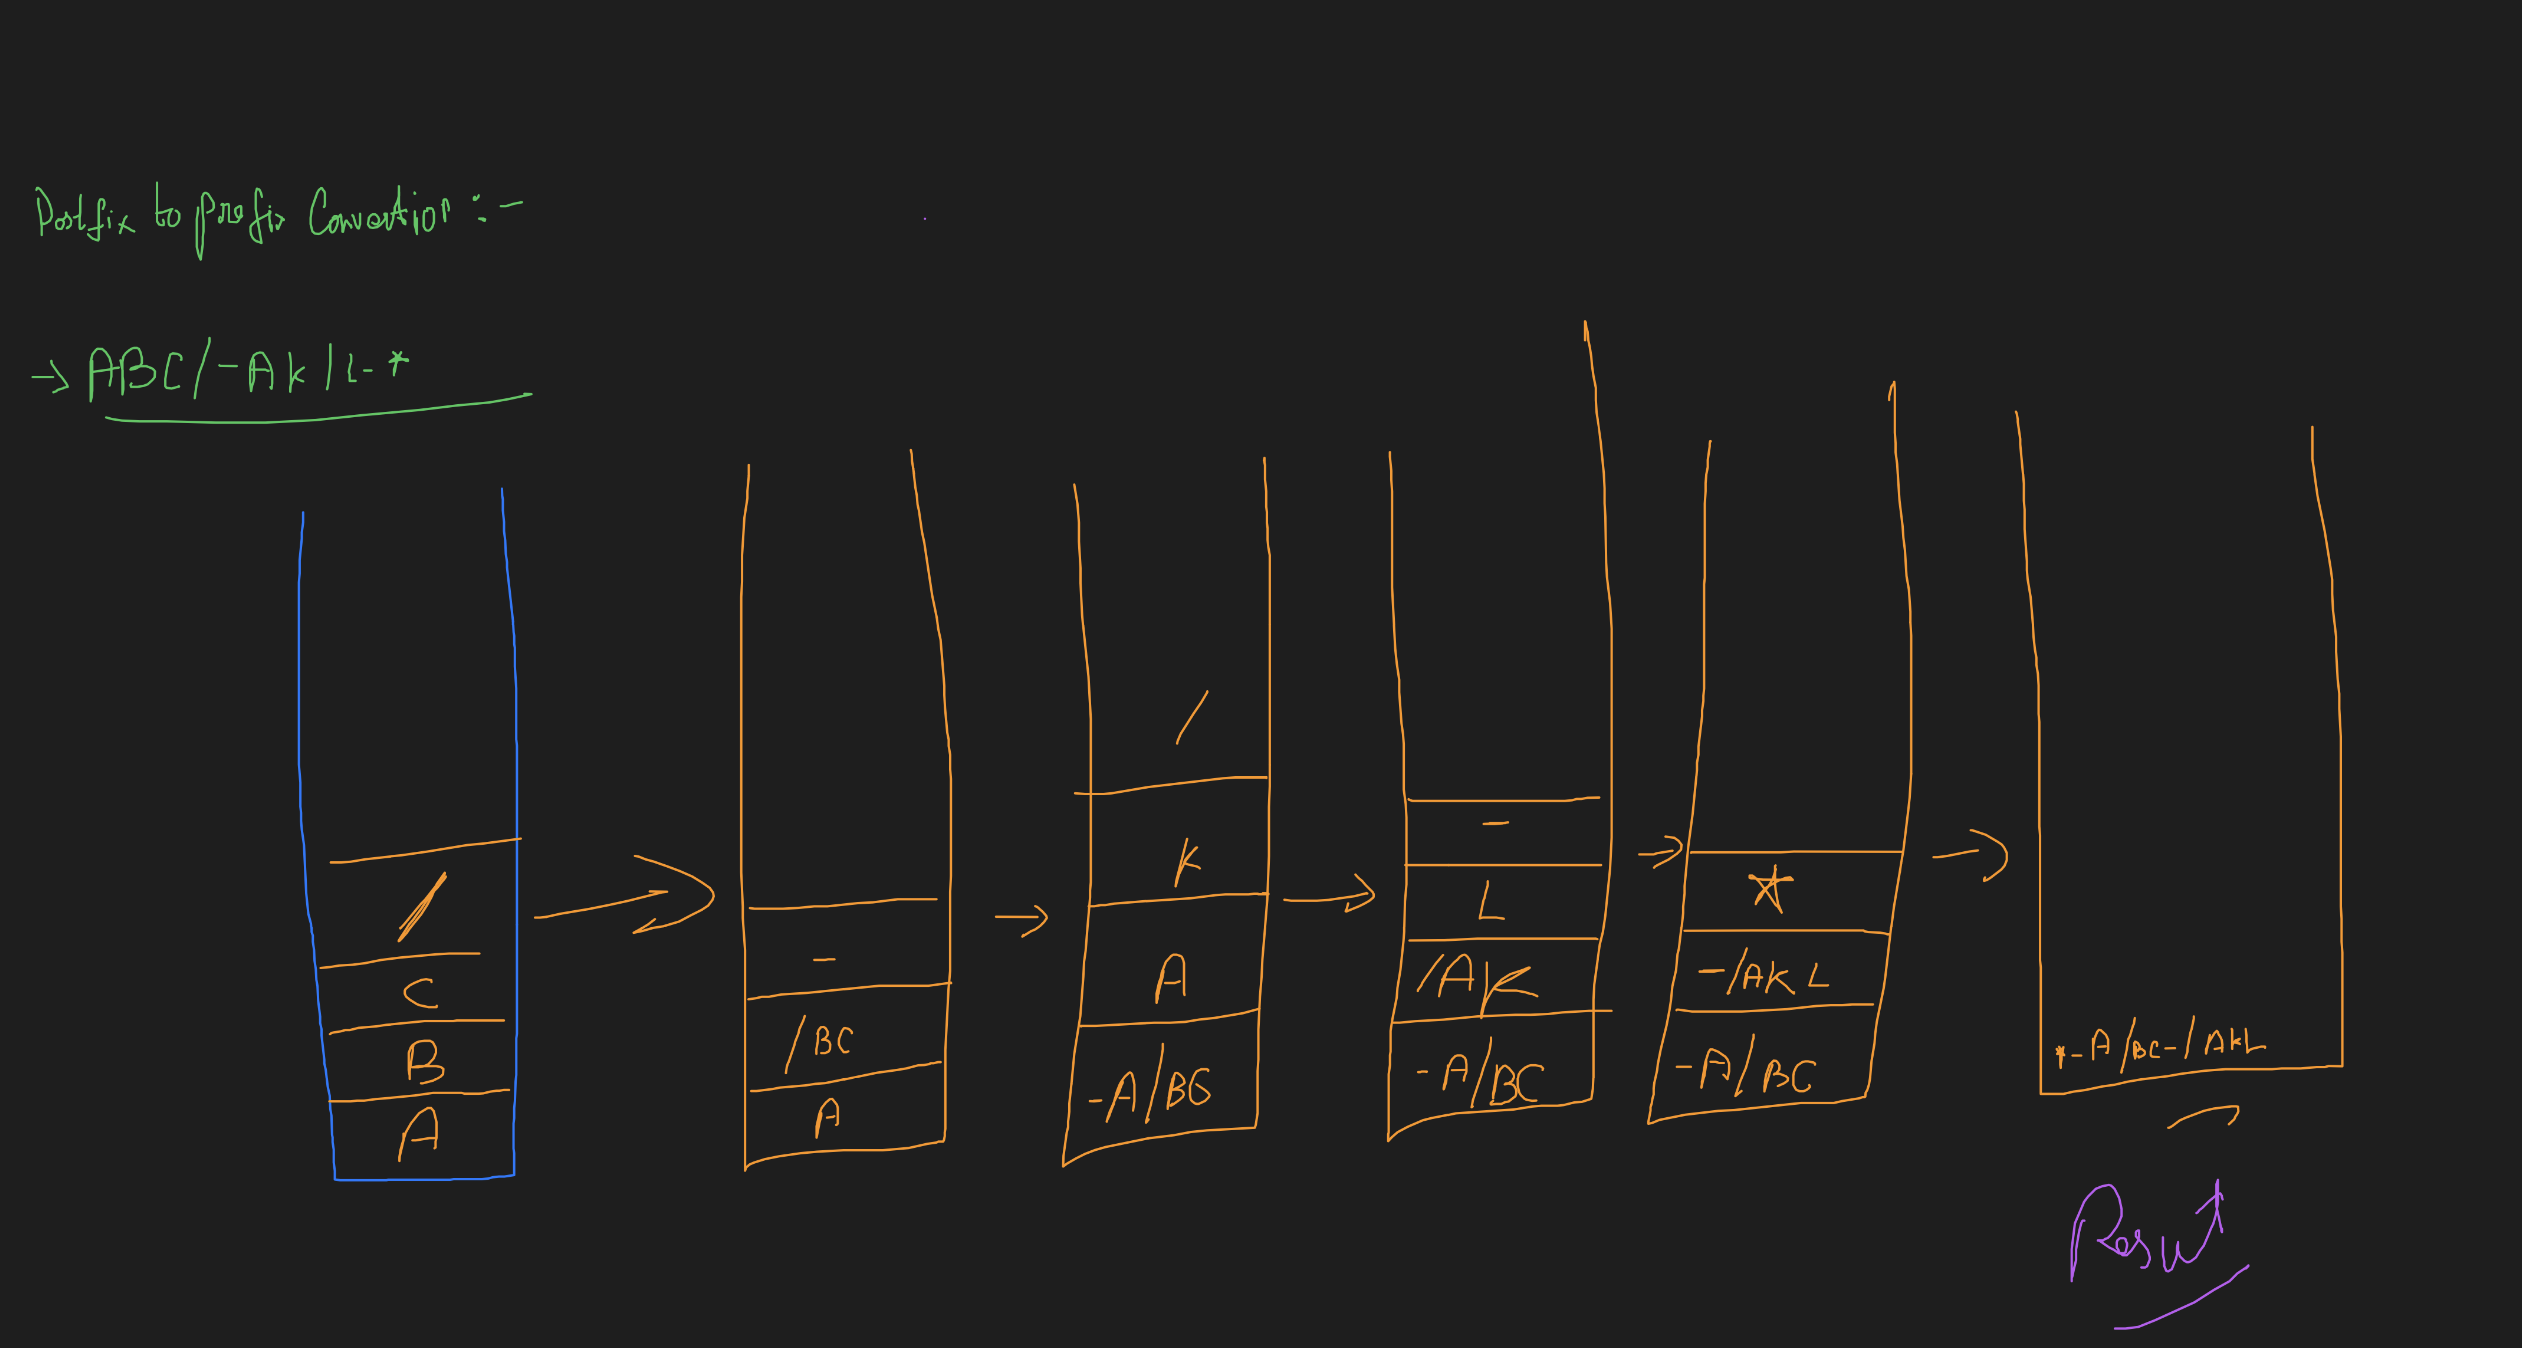 Postfix to prefix Convertion :-
→ ABC/-AK/L-*
/
C
B
A
-
/BC
A
/
K
A
-A/BC
-
L
/AK
-A/BC
*
-/AKL
-A/BC
*-A/BC-/AKL
Result